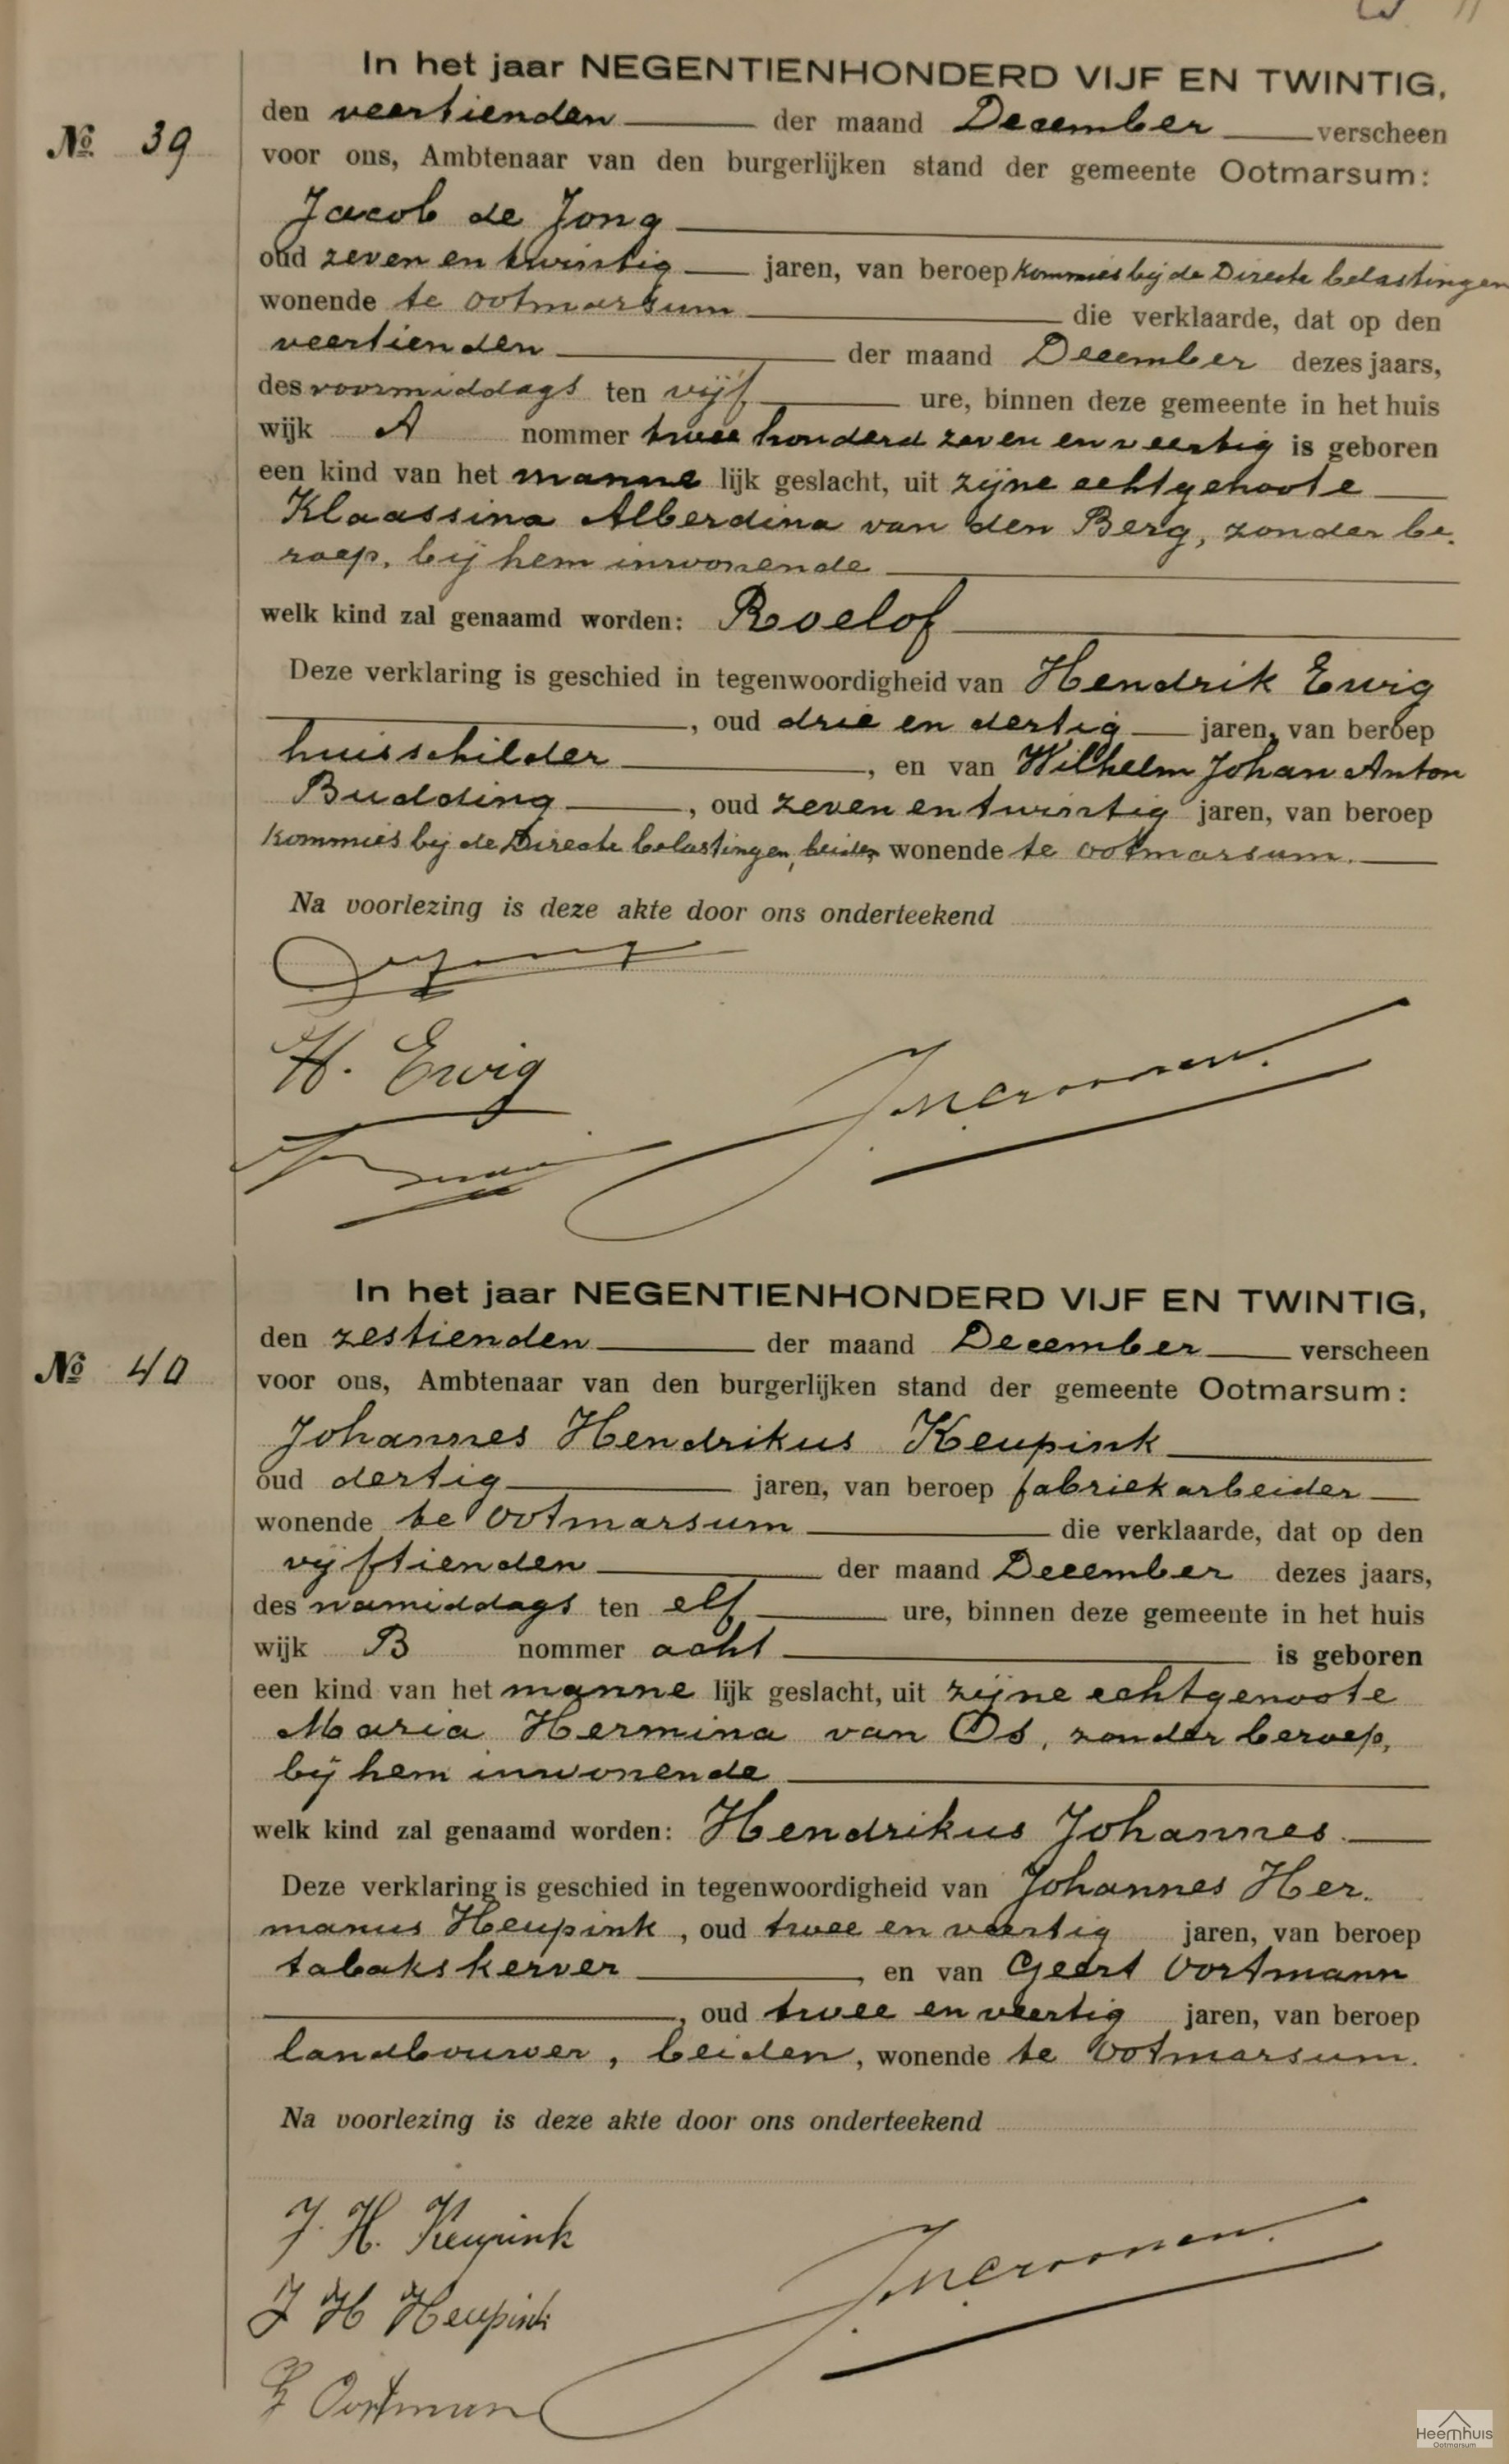 In het jaar NEGENTIENHONDERD VIJF EN TWINTIG,
den veertienden der maand December verscheen
№ 39
voor ons, Ambtenaar van den burgerlijken stand der gemeente Ootmarsum:
Jacob de Jong
oud zeven en twintig jaren, van beroep kommies bij de Directe belastingen
wonende te Ootmarsum die verklaarde, dat op den
veertienden der maand December dezes jaars,
des voormiddags ten vijf ure, binnen deze gemeente in het huis
wijk A nommer twee honderd zeven en veertig is geboren
een kind van het manne lijk geslacht, uit zijne echtgenoote
Klaassina Alberdina van den Berg, zonder be-
roep, bij hem inwonende
welk kind zal genaamd worden: Roelof
Deze verklaring is geschied in tegenwoordigheid van Hendrik Ewig
, oud drie en dertig jaren, van beroep
huisschilder , en van Wilhelm Johan Anton
Budding , oud zeven en twintig jaren, van beroep
kommies bij de Directe belastingen, beiden wonende te Ootmarsum.
Na voorlezing is deze akte door ons onderteekend
H. Ewig
In het jaar NEGENTIENHONDERD VIJF EN TWINTIG,
den zestienden der maand December verscheen
№ 40
voor ons, Ambtenaar van den burgerlijken stand der gemeente Ootmarsum:
Johannes Hendrikus Keupink
oud dertig jaren, van beroep fabriekarbeider
wonende te Ootmarsum die verklaarde, dat op den
vijftienden der maand December dezes jaars,
des namiddags ten elf ure, binnen deze gemeente in het huis
wijk B nommer acht is geboren
een kind van het manne lijk geslacht, uit zijne echtgenoote
Maria Hermina van Os, zonder beroep,
bij hem inwonende
welk kind zal genaamd worden: Hendrikus Johannes.
Deze verklaring is geschied in tegenwoordigheid van Johannes Her-
manus Heupink , oud twee en veertig jaren, van beroep
tabakskerver , en van Geert Oortmann
, oud twee en veertig jaren, van beroep
landbouwer, beiden, wonende te Ootmarsum.
Na voorlezing is deze akte door ons onderteekend
J. H. Keupink
J H Heupink
G Oortman
Heemhuis
Ootmarsum